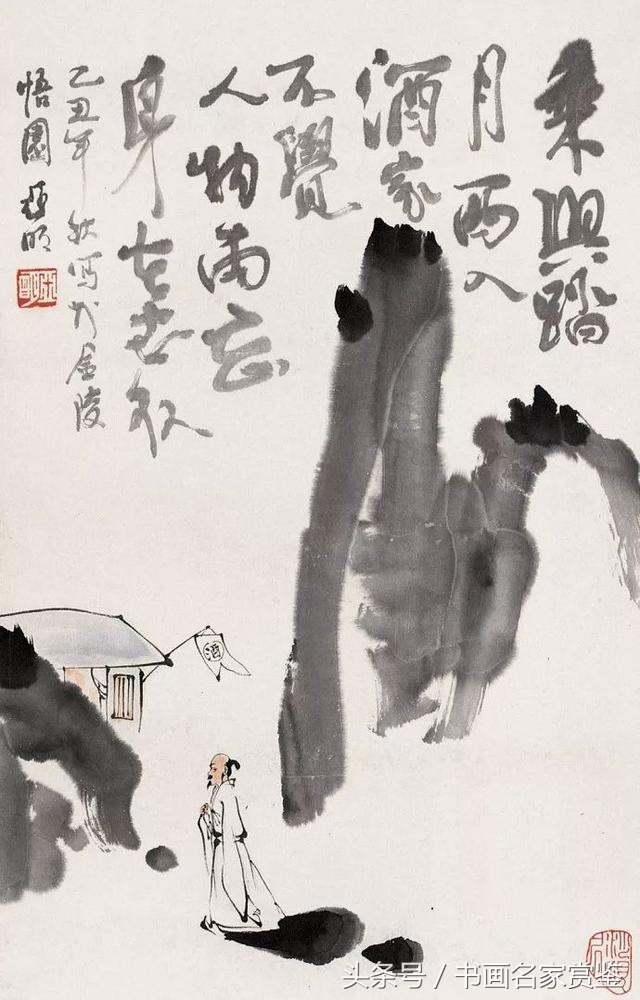 乘興踏
月西入
酒家
不覺
人物兩忘
身在世外
乙丑年秋寫於金陵
悟園 亞明
酒
头条号 / 书画名家赏鉴